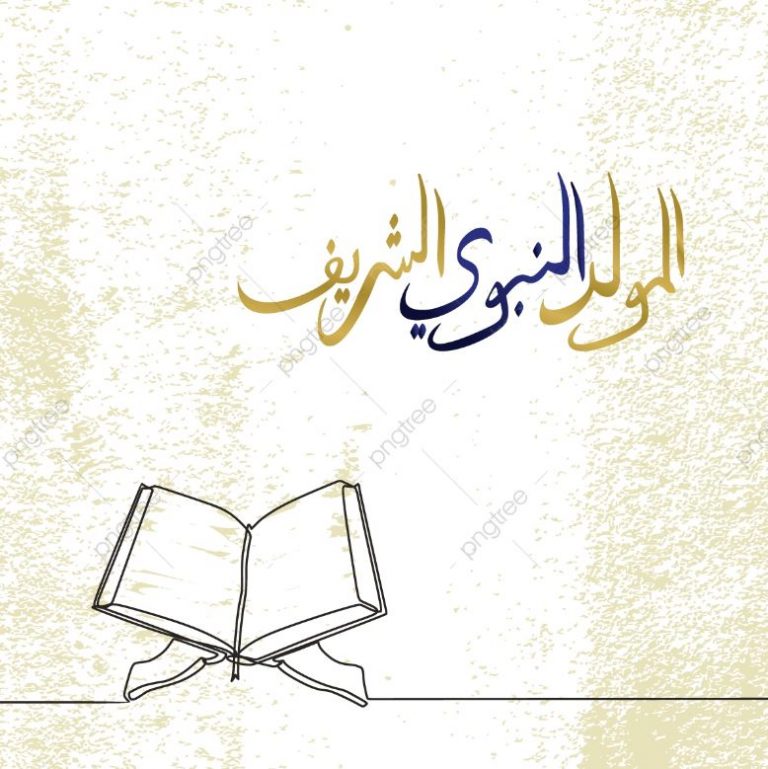 المولد النبوي الشريف
pngtree
pngtree
pngtree
pngtree
pngtree
pngtree
pngtree
pngtree